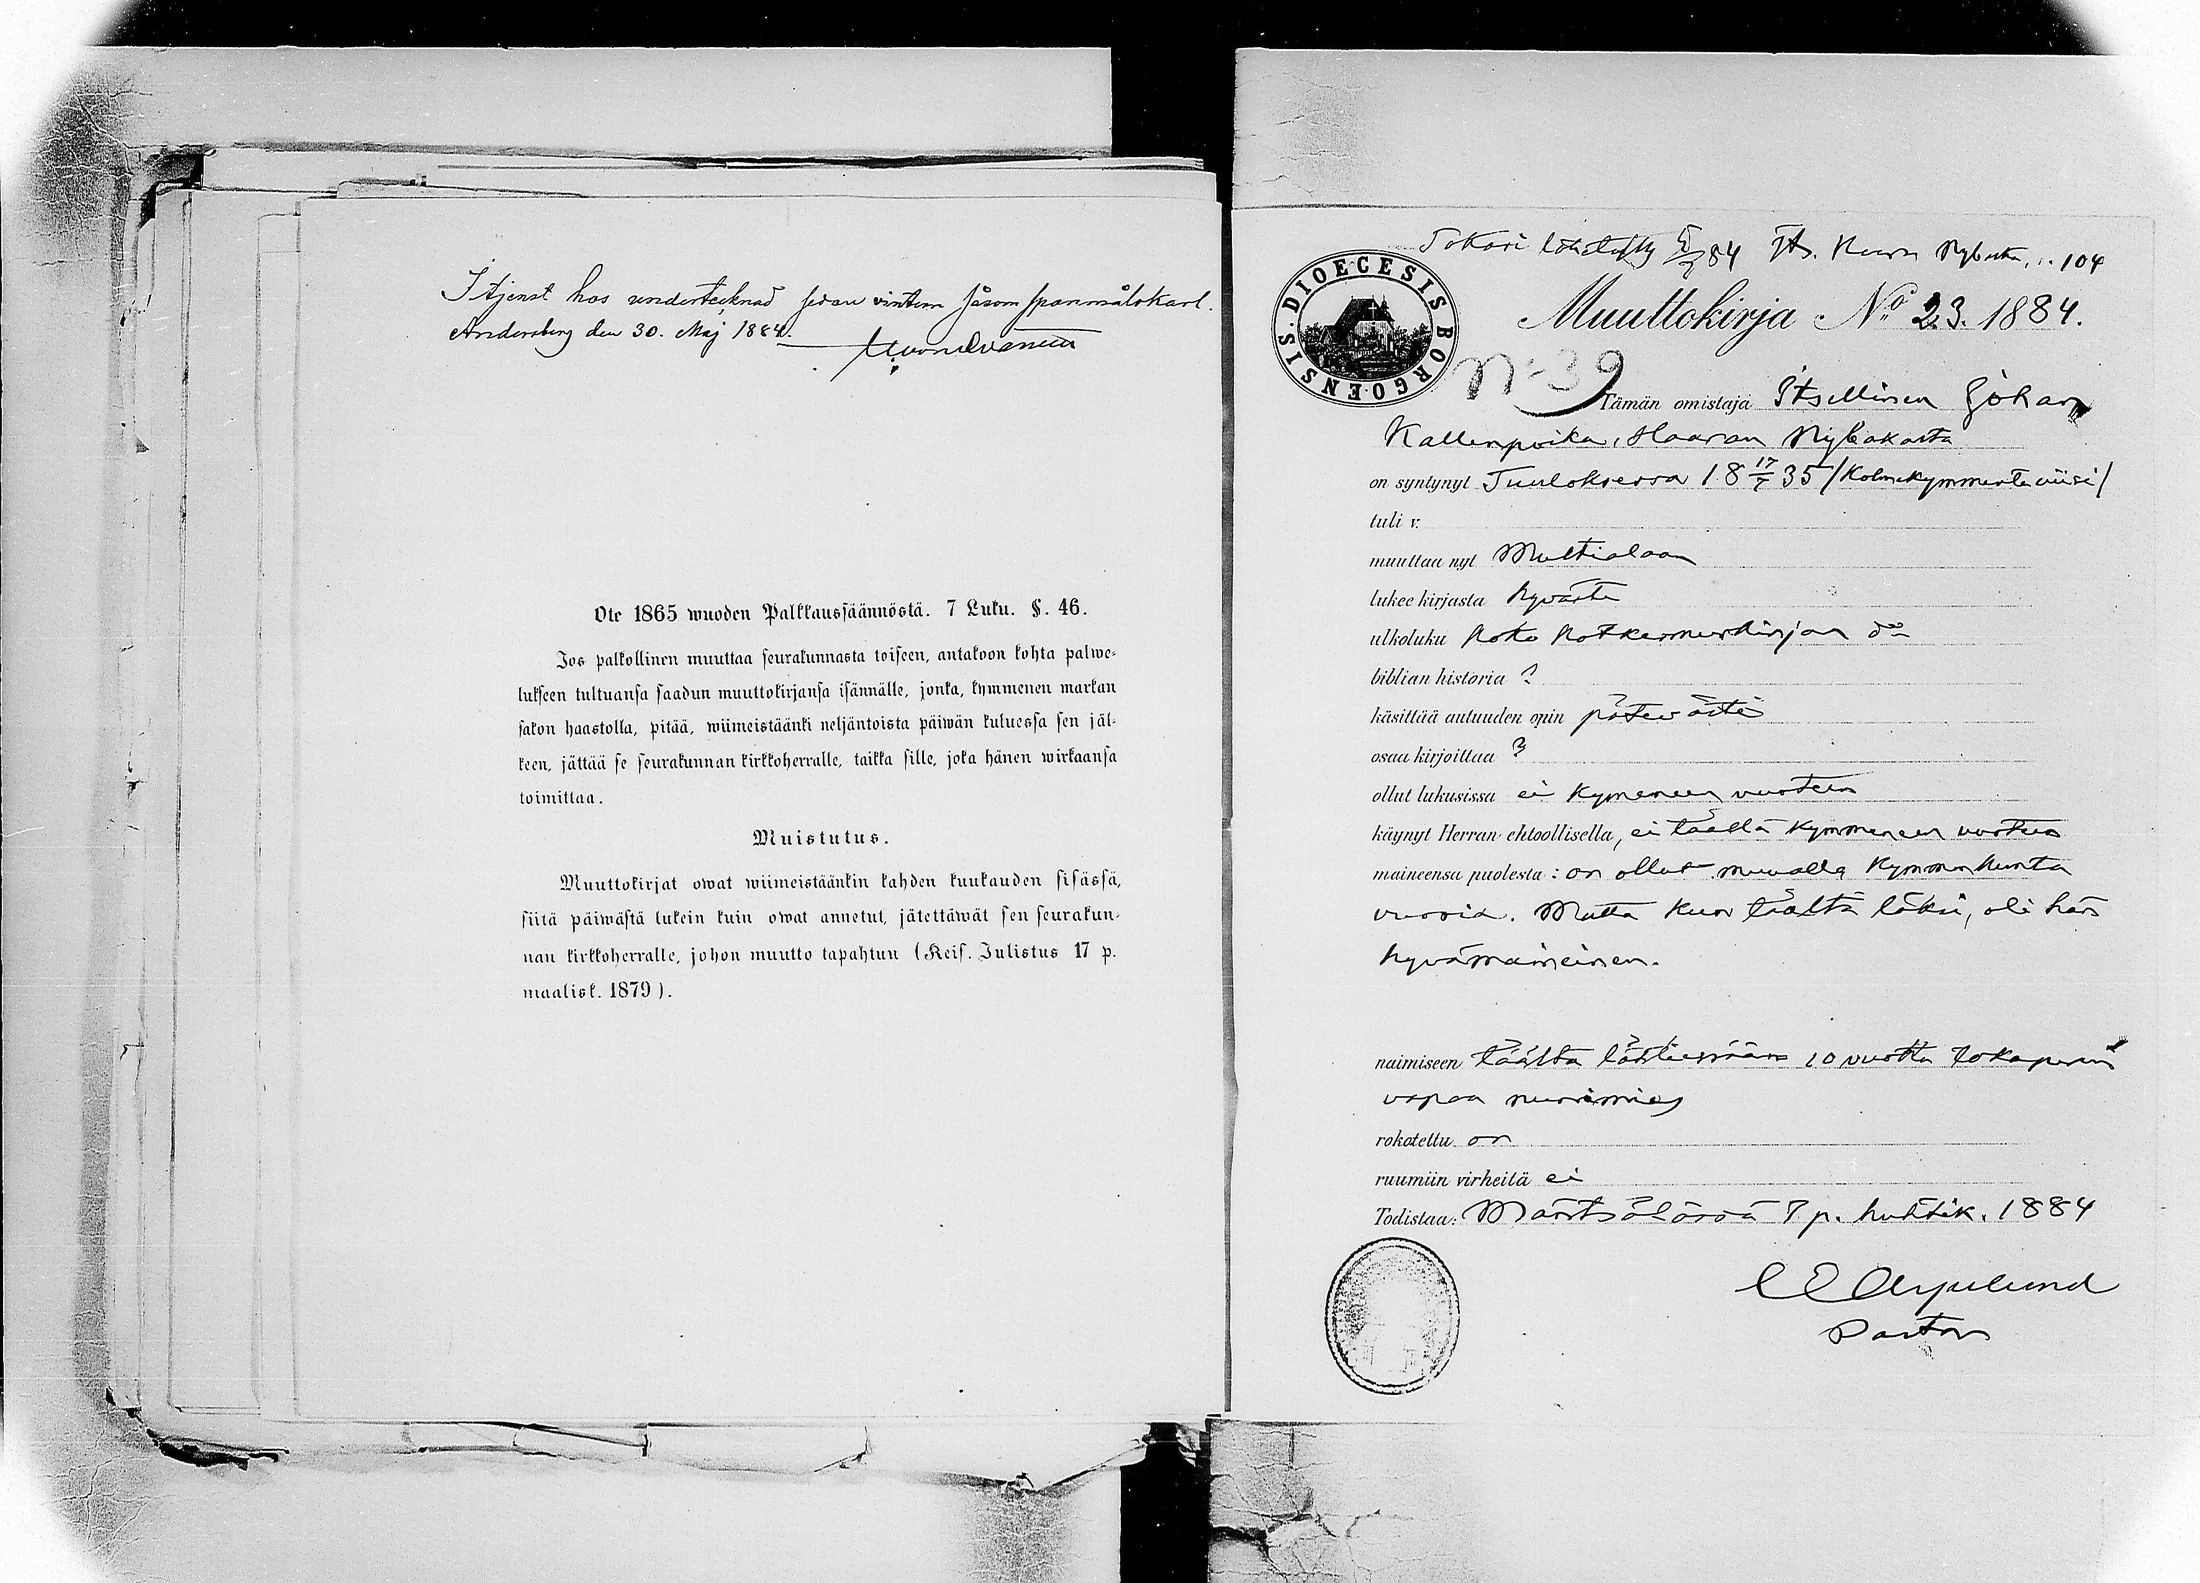 I tjenst hos undertecknad sedan vintern såsom spannmålskarl.
Andersberg den 30. Maj 1884.
Ote 1865 wuoden Palkkaussäännöstä. 7 Luku. §. 46.
Jos palkollinen muuttaa seurakunnasta toiseen, antakoon kohta palwe-
lukseen tultuansa saadun muuttokirjansa isännälle, jonka, kymmenen markan
sakon haastolla, pitää, wiimeistäänki neljäntoista päiwän kuluessa sen jäl-
keen, jättää se seurakunnan kirkkoherralle, taikka sille, joka hänen wirkaansa
toimittaa.
Muistutus.
Muuttokirjat owat wiimeistäänkin kahden kuukauden sisässä,
siitä päiwästä lukein kuin owat annetut, jätettäwät sen seurakun-
nan kirkkoherralle, johon muutto tapahtuu (Keis. Julistus 17 p.
maalisk. 1879).
84 104
DIOECESIS BORGOENSIS.
Muuttokirja No 23. 1884.
N:39
Tämän omistaja Itsellinen Johan
Kallenpoika, Haaran Nybakasta
on syntynyt Tuuloksessa 18 17/7 35 /Kolmekymmentäviisi/
tuli v.
muuttaa nyt Multialaan
lukee kirjasta hyvästi
ulkoluku koko katkesmuskirjan d:o
biblian historia ?
käsittää autuuden opin pätevästi
osaa kirjoittaa ?
ollut lukusissa ei kymmeneen vuoteen
käynyt Herran ehtoollisella, ei täällä kymmeneen vuoteen
maineensa puolesta: on ollut muualla kymmenkunta
vuosia. Mutta kun täältä läksi, oli hän
hyvämaineinen.
naimiseen täältä lähtiessään 10 vuotta takaperin
vapaa nuorimies
rokotettu on
ruumiin virheitä ei
Todistaa: Mäntsälässä 7 p. huhtik. 1884
Pastor